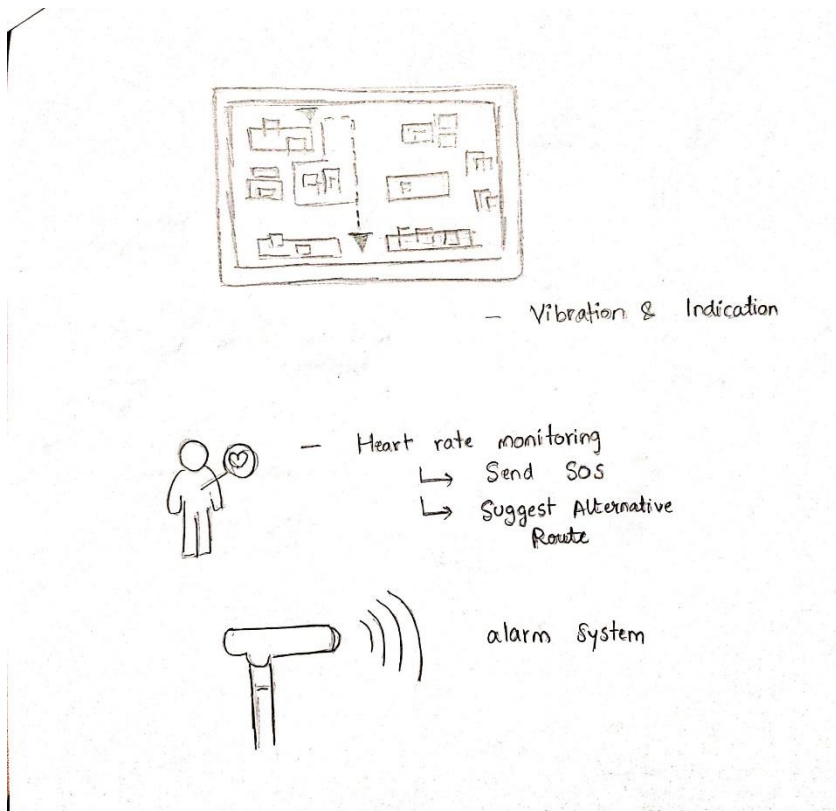 - Vibration & Indication
- Heart rate monitoring
↳ Send SOS
↳ Suggest Alternative
Route
alarm system